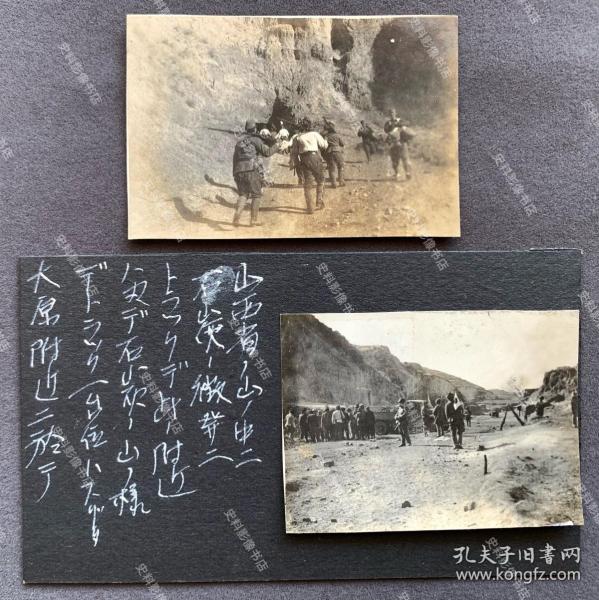 山西省ノ山ノ中ニ
石炭ノ徴発ニ
トラックデ 附近
ハ丸デ石炭ノ山ノ様
デトラック一台位ハスグ
大原附近ニ於テ
史料影像书店
孔夫子旧书网
www.kongfz.com